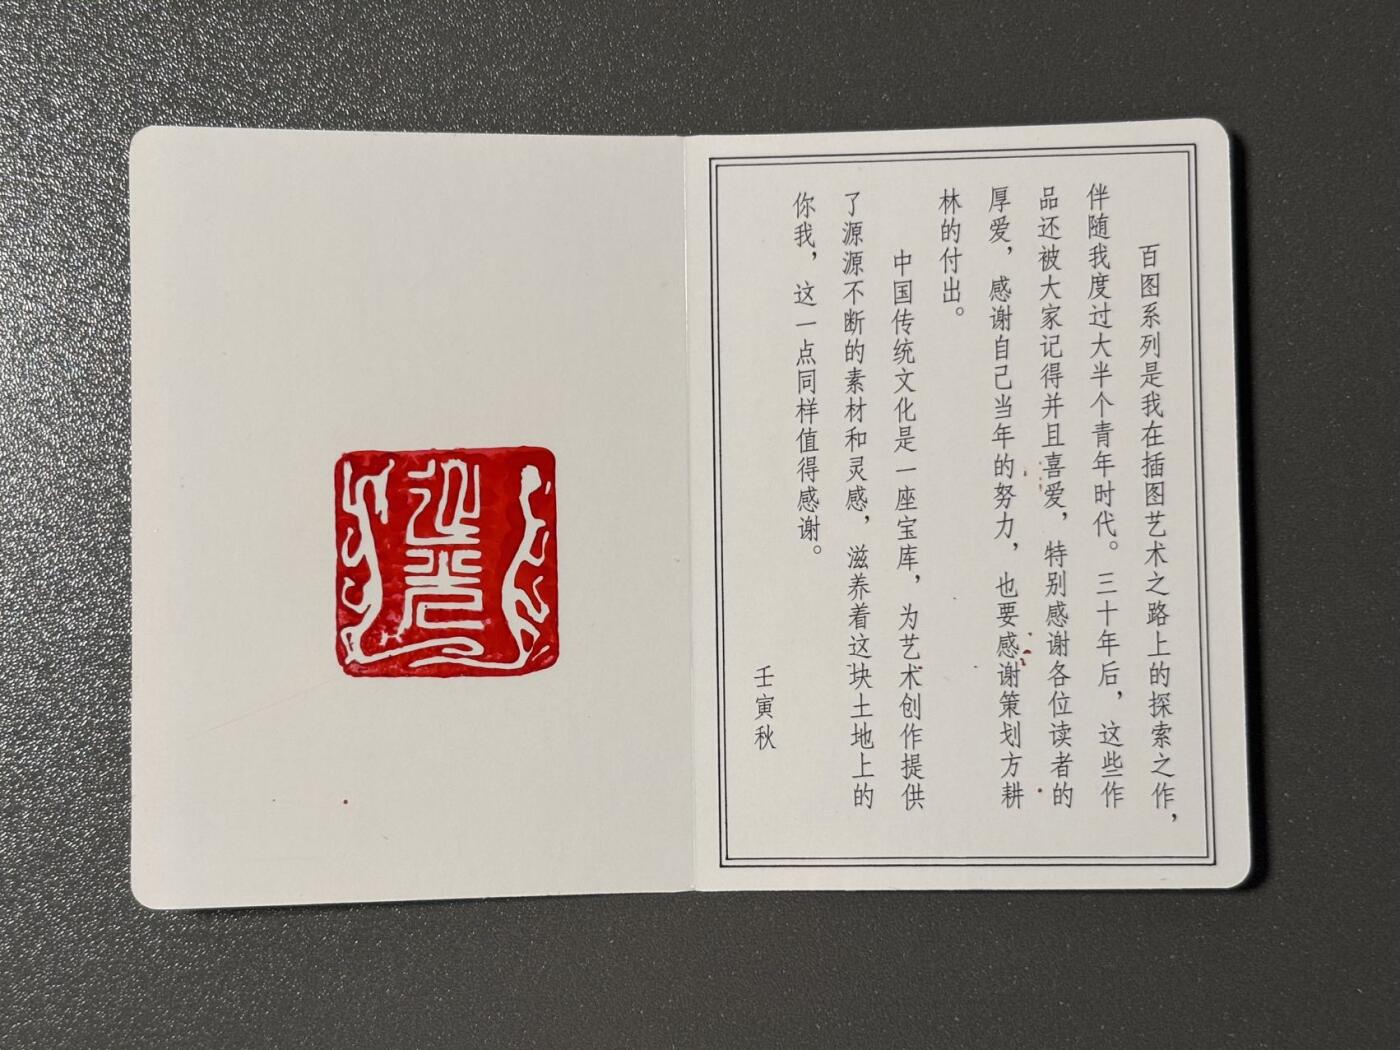 百图系列是我在插图艺术之路上的探索之作，
伴随我度过大半个青年时代。三十年后，这些作
品还被大家记得并且喜爱，特别感谢各位读者的
厚爱，感谢自己当年的努力，也要感谢策划方耕
林的付出。
中国传统文化是一座宝库，为艺术创作提供
了源源不断的素材和灵感，滋养着这块土地上的
你我，这一点同样值得感谢。
壬寅秋